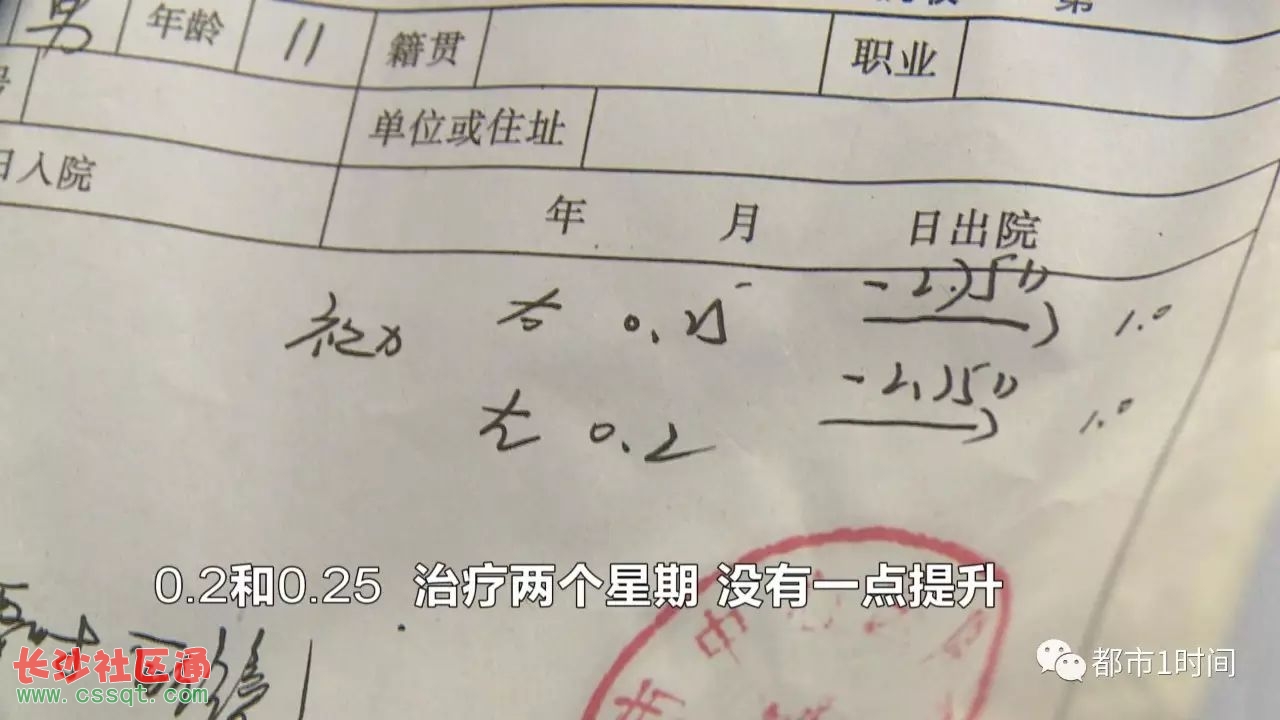 男 年龄 11 籍贯 职业
单位或住址
日入院 年 月 日出院
视力 右 0.25 -2.75D 1.0
左 0.2 -2.75D 1.0
0.2和0.25 治疗两个星期 没有一点提升
中
长沙社区通
www.cssqt.com
都市1时间